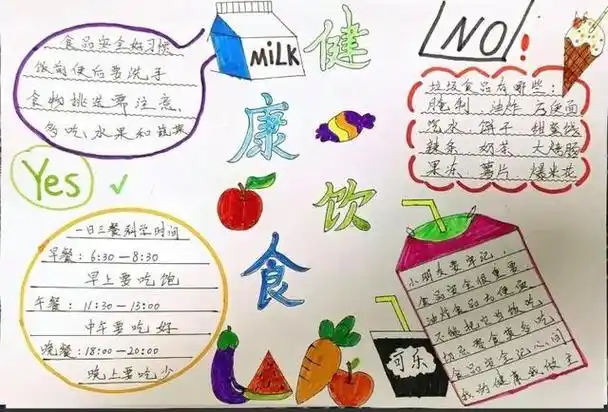 食品安全好习惯
饭前便后要洗手
食物挑选要注意
多吃水果和蔬菜
MiLK
健
康
饮
食
NO!
垃圾食品有哪些:
油炸 方便面
汽水 饼干 甜蛋筒
辣条 奶茶 大烤肠
果冻 薯片 爆米花
Yes
一日三餐科学时间
早餐:6:30—8:30
早上要吃饱
午餐:11:30—13:00
中午要吃好
晚餐:18:00—20:00
晚上要吃少
可乐
小朋友要牢记,
食品安全很重要
油炸食品方便面
不能把它当饭吃
切忌贪食莫多吃
食品安全记心间
我的健康我做主